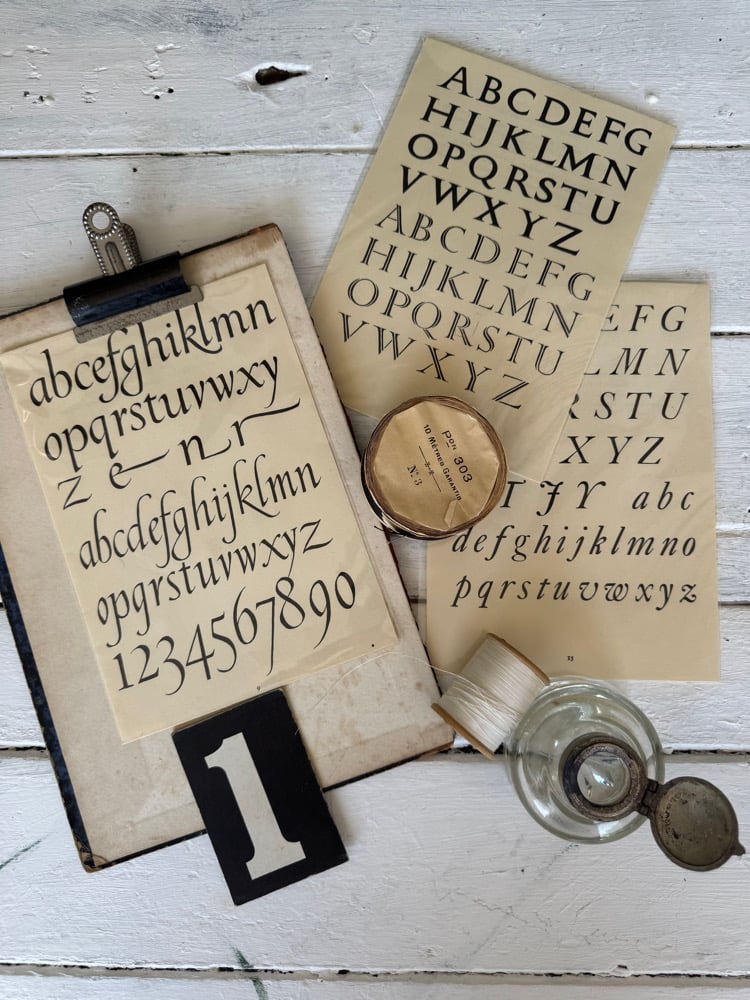 abcefghiklmn
opqrstuvwxy
z e n r
abcdefghijklmn
opqrstuvwxyz
1234567890
1
ABCDEFG
HIJKLMN
OPQRSTU
VWXYZ
ABCDEFG
HIJKLMN
OPQRSTU
VWXYZ
PON 303
10 MÈTRES GARANTIS
N° 3
EFG
LMN
RSTU
XYZ
T J Y abc
defghijklmno
pqrstuvwxyz